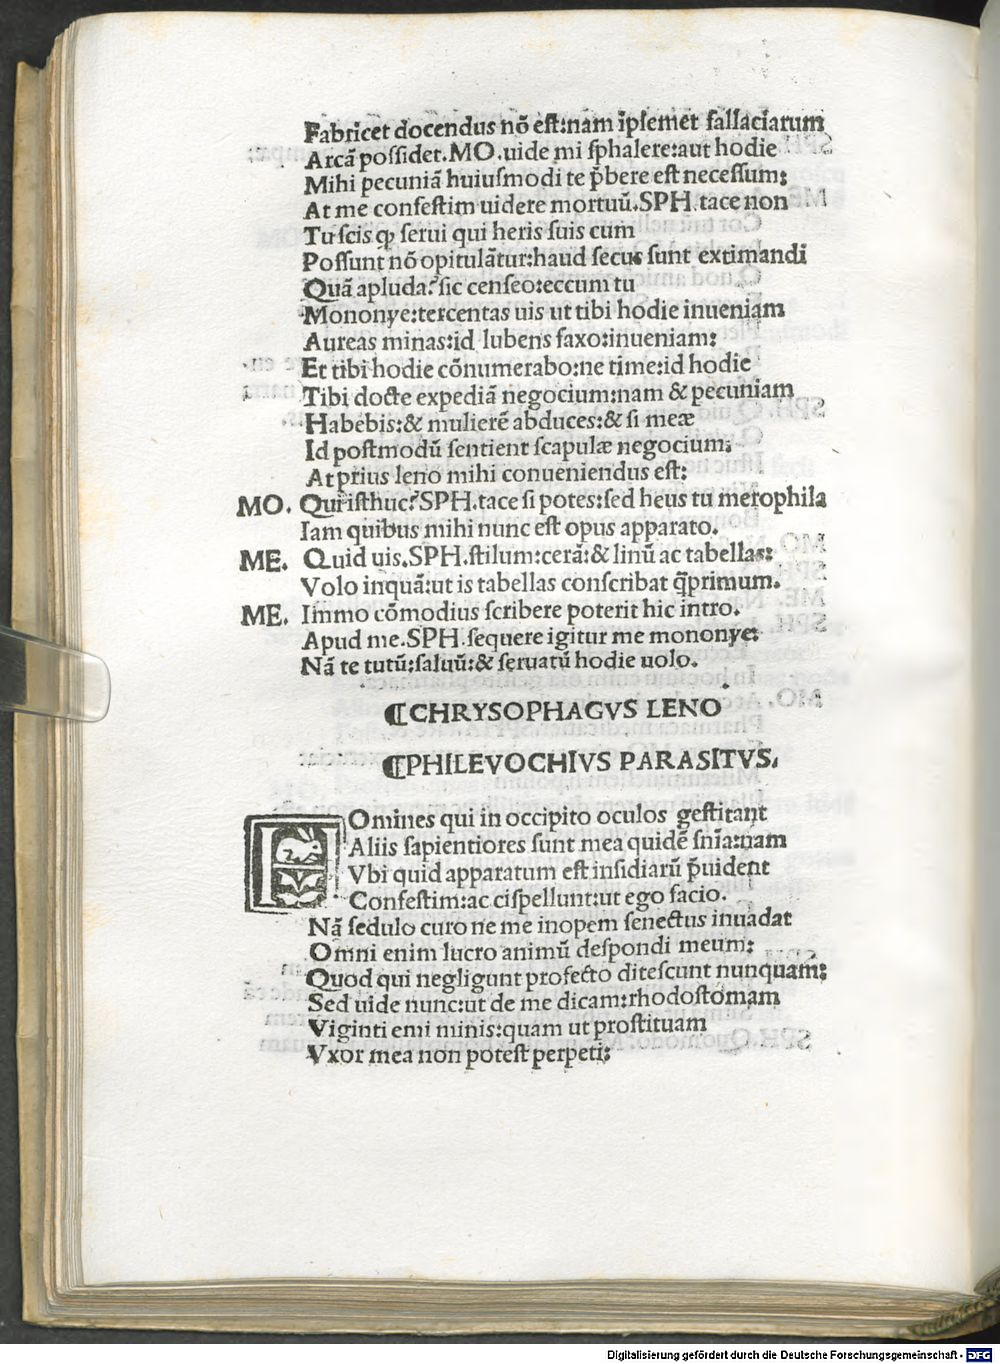 Fabricet docendus nõ eſt:nam ĩpſemet fallaciarum
Arcã poſſidet.MO.uide mi ſphalere:aut hodie
Mihi pecuniã huiuſmodi te p̃bere eſt neceſſum:
At me confeſtim uidere mortuũ.SPH.tace non
Tu ſcis ꝙ ſerui qui heris ſuis cum
Poſſunt nõ opitulãtur:haud ſecus ſunt extimandi
Quã apluda?ſic cenſeo:eccum tu
Mononye:tercentas uis ut tibi hodie inueniam
Aureas minas:id lubens faxo:inueniam:
Et tibi hodie cõnumerabo:ne time:id hodie
Tibi docte expediã negocium:nam & pecuniam
Habebis:& mulierẽ abduces:& ſi meæ
Id poſtmodũ ſentient ſcapulæ negocium:
At prius leno mihi conueniendus eſt:
MO. Qui iſthuc?SPH.tace ſi potes:ſed heus tu merophila
Iam quibus mihi nunc eſt opus apparato.
ME. Quid uis.SPH.ſtilum:cerã:& linũ ac tabellas:
Volo inquã:ut is tabellas conſcribat q̃primum.
ME. Immo cõmodius ſcribere poterit hic intro.
Apud me.SPH.ſequere igitur me mononye:
Nã te tutũ:ſaluũ:& ſeruatũ hodie uolo.
⸿CHRYSOPHAGVS LENO
⸿PHILEVOCHIVS PARASITVS.
HOmines qui in occipito oculos geſtitant
Aliis ſapientiores ſunt mea quidẽ ſnĩa:nam
Vbi quid apparatum eſt inſidiarũ p̃uident
Confeſtim:ac ciſpellunt:ut ego facio.
Nã ſedulo curo ne me inopem ſenectus inuadat
Omni enim lucro animũ deſpondi meum:
Quod qui negligunt profecto diteſcunt nunquam:
Sed uide nunc:ut de me dicam:rhodoſtomam
Viginti emi minis:quam ut proſtituam
Vxor mea non poteſt perpeti:
Digitalisierung gefördert durch die Deutsche Forschungsgemeinschaft - DFG